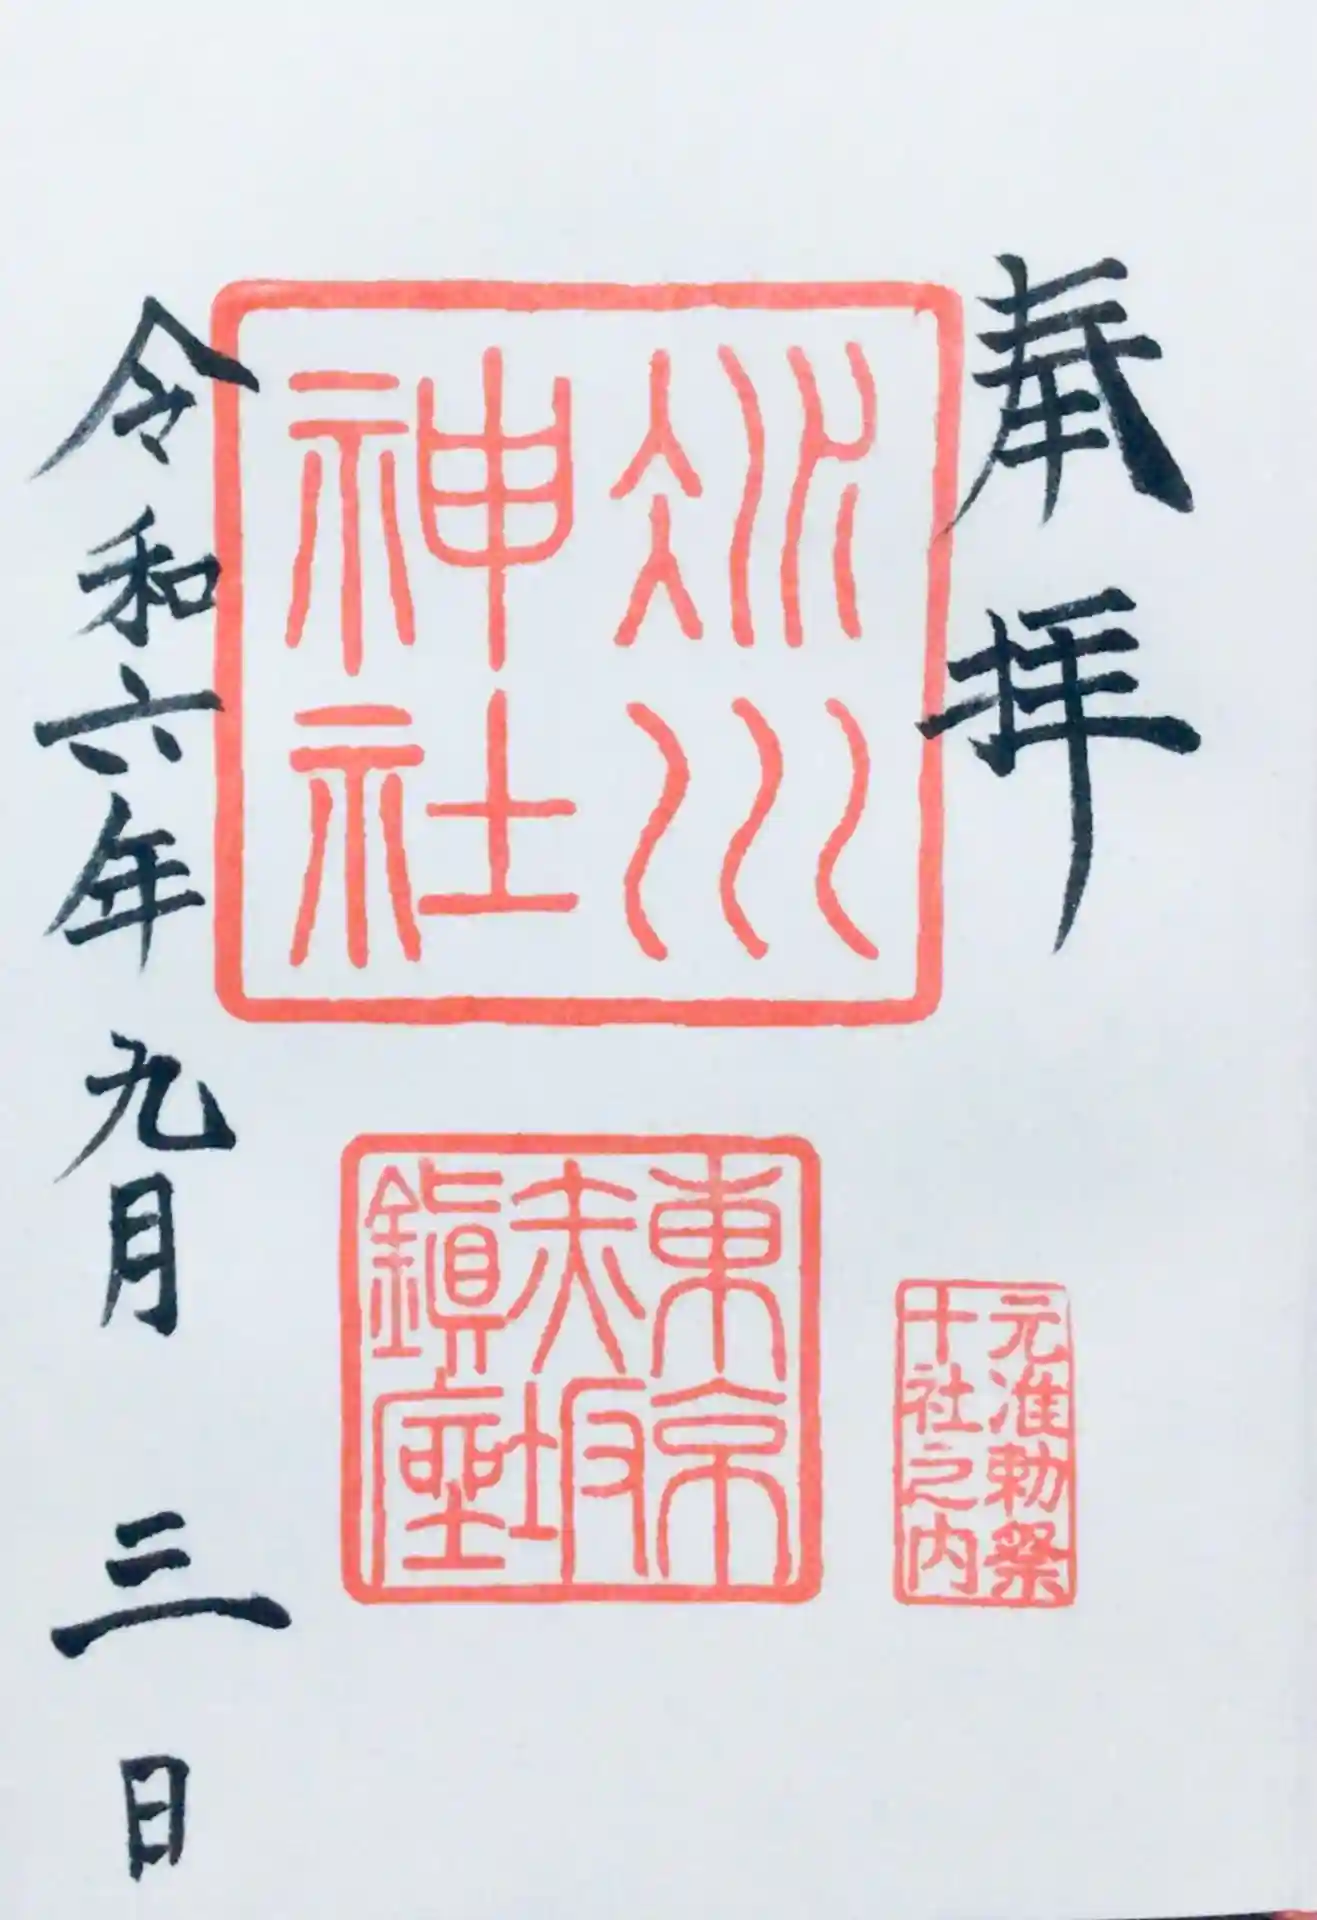 奉拝
氷川
神社
東京
赤坂
鎮座
元准勅祭
十社之内
令和六年九月三日